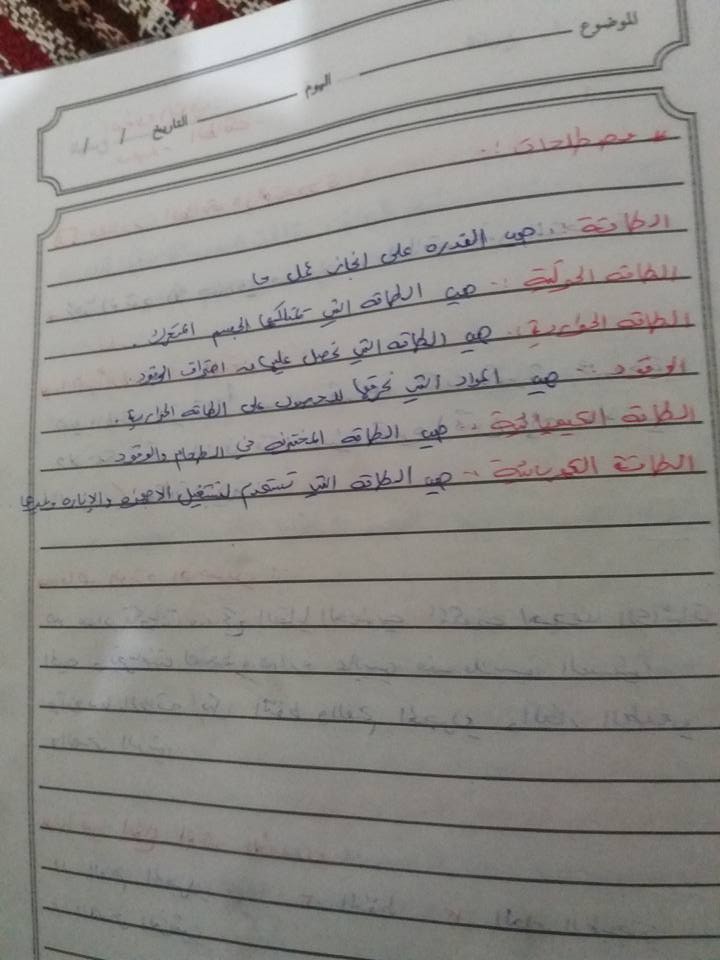 الموضوع
اليوم
التاريخ / /
* مصطلحات :.
الطاقة :. هي القدره على انجاز عمل ما
الطاقه الحركية :. هي الطاقه التي يمتلكها الجسم المتحرك .
الطاقه الحرارية :. هي الطاقه التي نحصل عليها من احتراق الوقود .
الوقود :. هي المواد التي نحرقها للحصول على الطاقه الحرارية .
الطاقة الكيميائية :. هي الطاقه المختزنه في الطعام والوقود .
الطاقة الكهربائية :. هي الطاقه التي تستخدم لتشغيل الاجهزه والإناره وغيرها